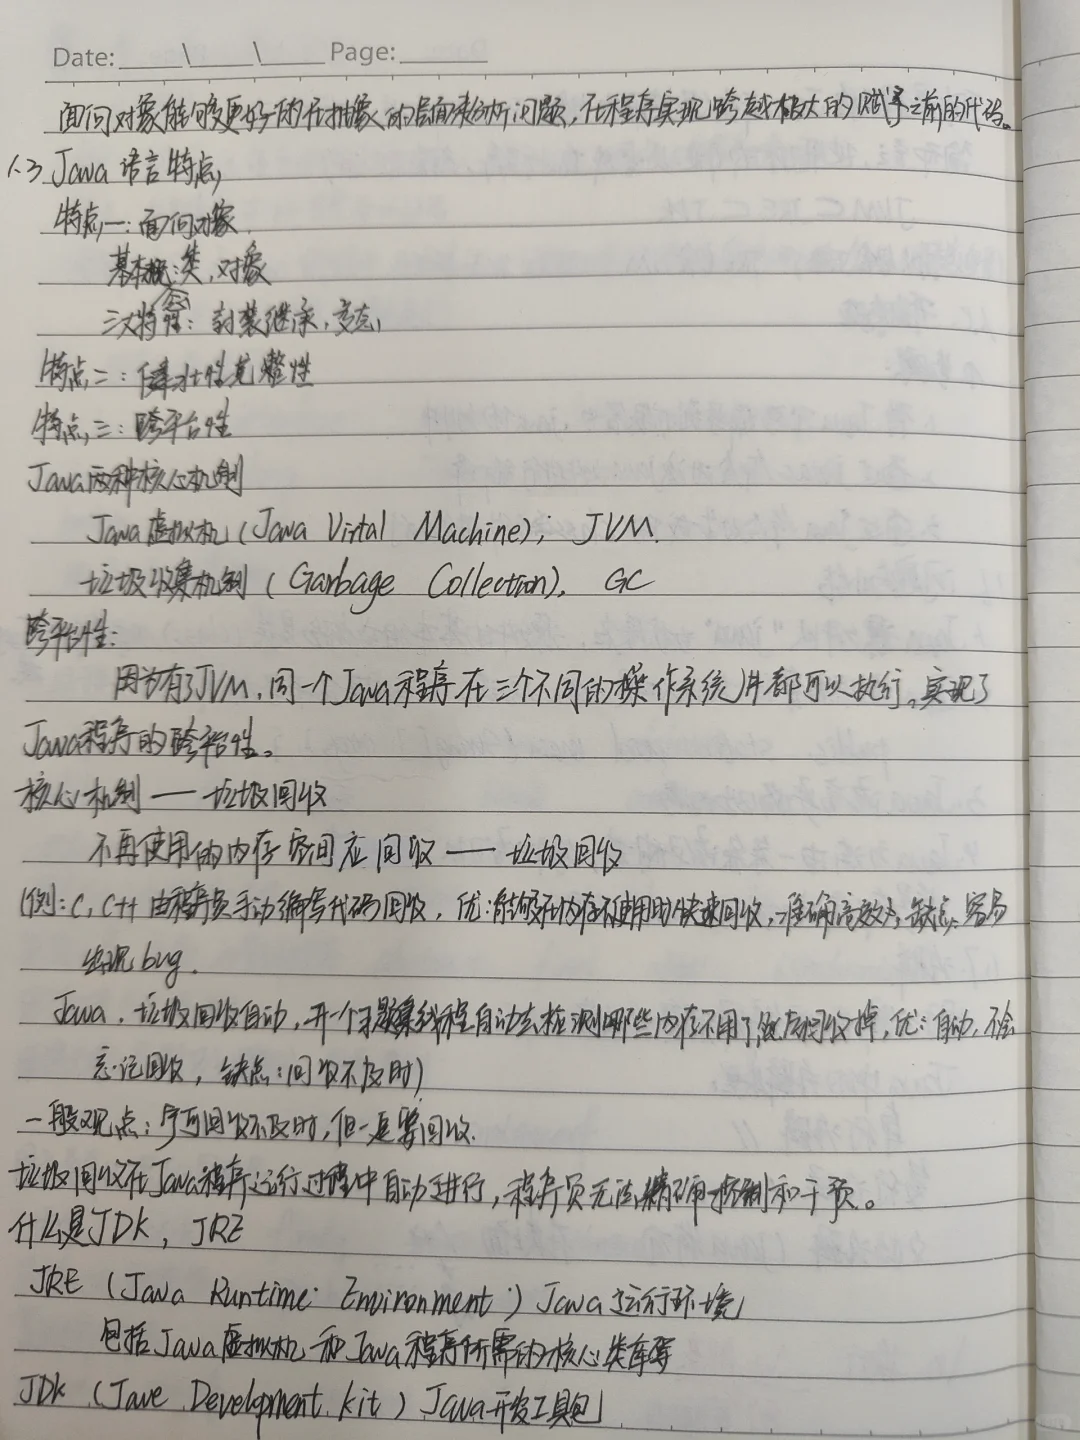 Date: \ \ Page:
面向对象能够更好的在抽象的层面来分析问题,在程序实现跨越极大的赋予之前的代码。
1.3 Java 语言特点
特点一:面向对象
基本概念:类,对象
三大特性:封装继承,多态
特点二:健壮性完整性
特点三:跨平台性
Java两种核心机制
Java虚拟机(Java Virtal Machine);JVM.
垃圾收集机制(Garbage Collection). GC
跨平台性:
因为有了JVM,同一个Java程序在三个不同的操作系统上都可以执行。实现了
Java程序的跨平台性。
核心机制——垃圾回收
不再使用的内存空间应回收——垃圾回收
(例:C,C++由程序员手动编写代码回收,优:能够在内存不使用时快速回收,准确高效,缺点.容易
出现bug.
Java.垃圾回收自动,开一个线程自动去检测哪些内存不用了然后回收掉,优:自动,不会
忘记回收,缺点:回收不及时)
一般观点:宁可回收不及时,但一定要回收.
垃圾回收在Java程序运行过程中自动进行,程序员无法精确控制和干预。
什么是JDK,JRE
JRE (Java Runtime Environment)Java运行环境
包括Java虚拟机和Java程序所需的核心类库等
JDK (Jave Development kit)Java开发工具包